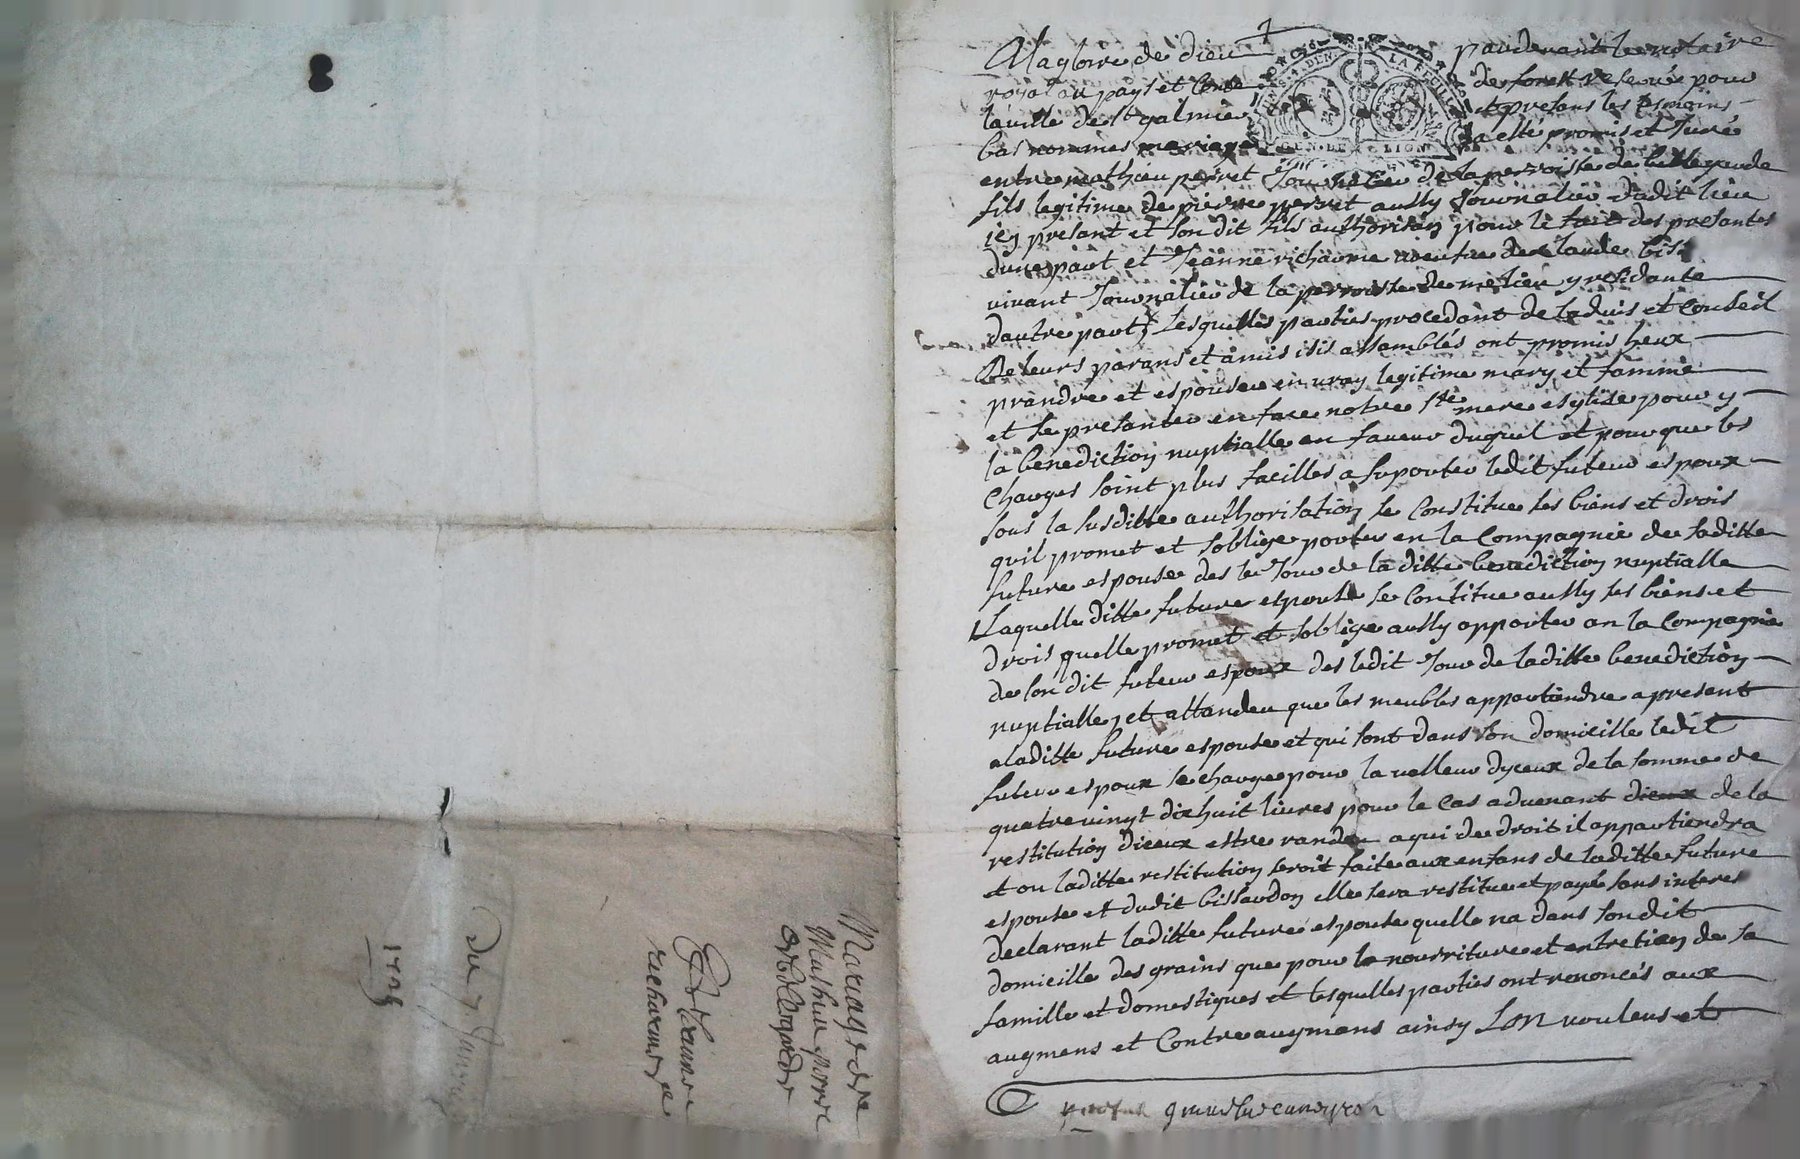 Mariage de
Mathieu perret
de bellegarde
Et Jeanne
richarme
Du 7 Janvier
Alagloire de dieu pardevant le notaire
royal au pays et Comté de forest reservé pour
la ville de St galmier et presans les temoins
bas nommes mariage a esté promis et Juré
entre mathieu perret Journalier de la perroisse de bellegarde
fils legitime de pierre perret aussy Journalier dudit lieu
icy presant et son dit fils authorisan pour le fait des presantes
dune part et Jeanne richarme vieufve de Claude bis
vivant Journalier de la perroisse de y residante
dautre part, Lesquelles parties procedant de ladvis et Conseil
De leurs parans et amis isis assamblés ont promis heux
prandre et espouser en vray legitime mary et famme
et se presanter en face notre ste mere esglise pour y
la benediction nuptialle en faveur duquel et pour que les
Charges soint plus facilles a suporter ledit futeur espoux
sous la susditte authorisation se Constitue ses biens et drois
quil promet et soblige porter en la Compagnie de saditte
future espouse des le Jour de laditte benediction nuptialle
Laquelle ditte future espouse se Contitue aussy ses biens et
drois quelle promet et soblige aussy apporter an la Compagnie
de son dit futeur espoux des ledit Jour de laditte benediction
nuptialle, et attandeu que les meubles appartiendre apresent
aladitte future espouse et qui sont dans son domicille ledit
futeur espoux se charge pour la velleur dyceux de la somme de
quatrevingt dixhuit livres pour le Cas advenant dela
restitution diceux estre randeu aqui de droit il appartiendra
et ou laditte restitution seroit faite aux enfans de laditte future
espouse et dudit bissardon elle sera restitue et payé sans interes
declarant laditte future espouse quelle na dans sondit
domicille des grains que pour la nourriture et entretien de sa
famille et domestiques et lesquelles parties ont renoncés aux
augmens et Contreaugmens ainsy Lon vouleus et